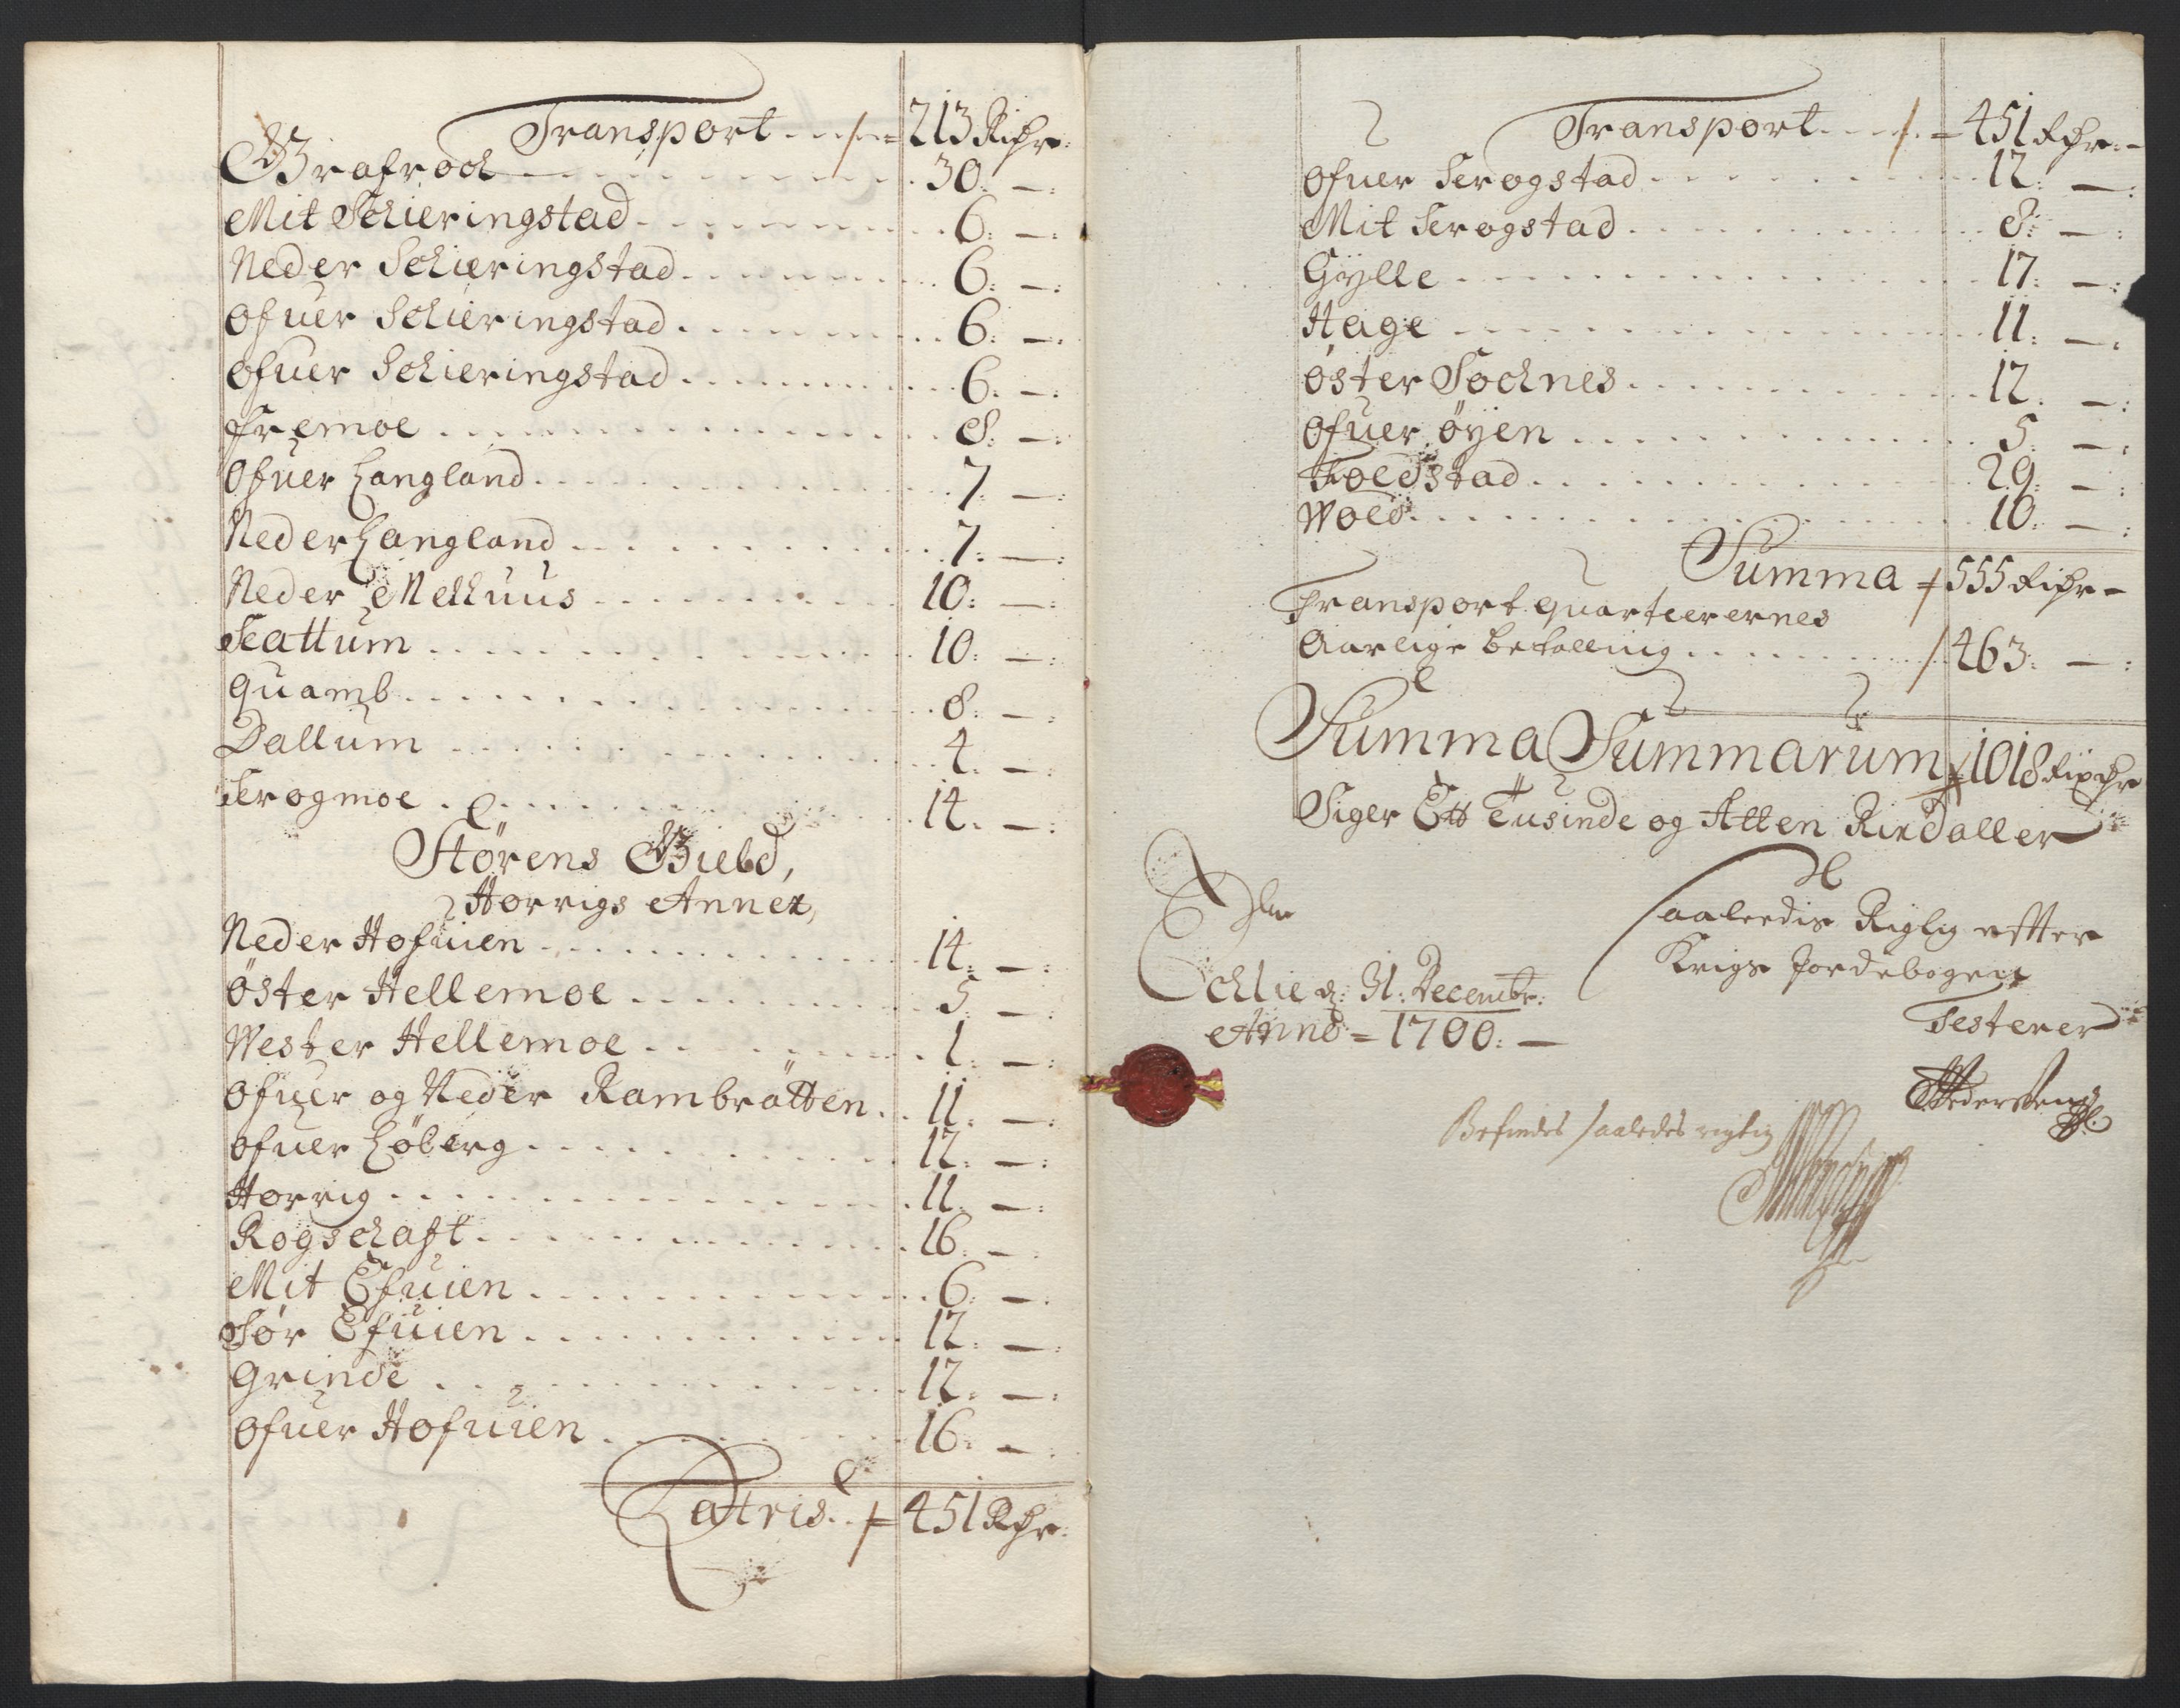 Transport - - - / = 213 Rihr:
Grafroch - - - 30: —:
Mit Schieringstad - - - 6: —:
Neder Schieringstad - - - 6: —:
Ofuer Schieringstad - - - 6: —:
Ofuer Schieringstad - - - 6: —:
Fremoe - - - 8: —:
Ofuer Langland - - - 7: —:
Neder Langland - - - 7: —:
Neder Melhuus - - - 10: —:
Skattum - - - 10: —:
Quamb - - - 8: —:
Dallum - - - 4: —:
Skrogmoe - - - 14: —:
Störens Gield,
Horrigs Annex,
Neder Hofuien - - - 14: —:
Öster Hellemoe - - - 5: —:
Wester Hellemoe - - - 1: —:
Ofuer og Neder Rambråtten - - 11: —:
Ofuer Löberg - - - 12: —:
Horrig - - - 11: —:
Rogschaft - - - 16: —:
Mit Efuien - - - 6: —:
Sör Efuien - - - 12: —:
Grinde - - - 12: —:
Ofuer Hofuien - - - 16: —:
Lattris - - / = 451 Rhr:
Transport - - - / = 451 Rhr: -
Ofuer Skrogstad - - - 12: —:
Mit Skrogstad - - - 8: —:
Gylle - - - 17: —:
Hage - - - 11: —:
Öster Sochnes - - - 12: —:
Ofuer Öyen - - - 5: —:
Foldstad - - - 29: —:
Wold - - - 10: —:
Summa / = 555 Rihr -
Transport quarteerernes
Aarlige betalling - - - / 463: —:
Summa Summarum / = 1018 Rixhr
Siger Ett Tusinde og Atten Rixdaller
Saaleedis Riglig effter
Krigs Jordebogen
Testerer
Echlie d: 31: Decembr:
Anno = 1700: —
Befindes saaledes rigtig